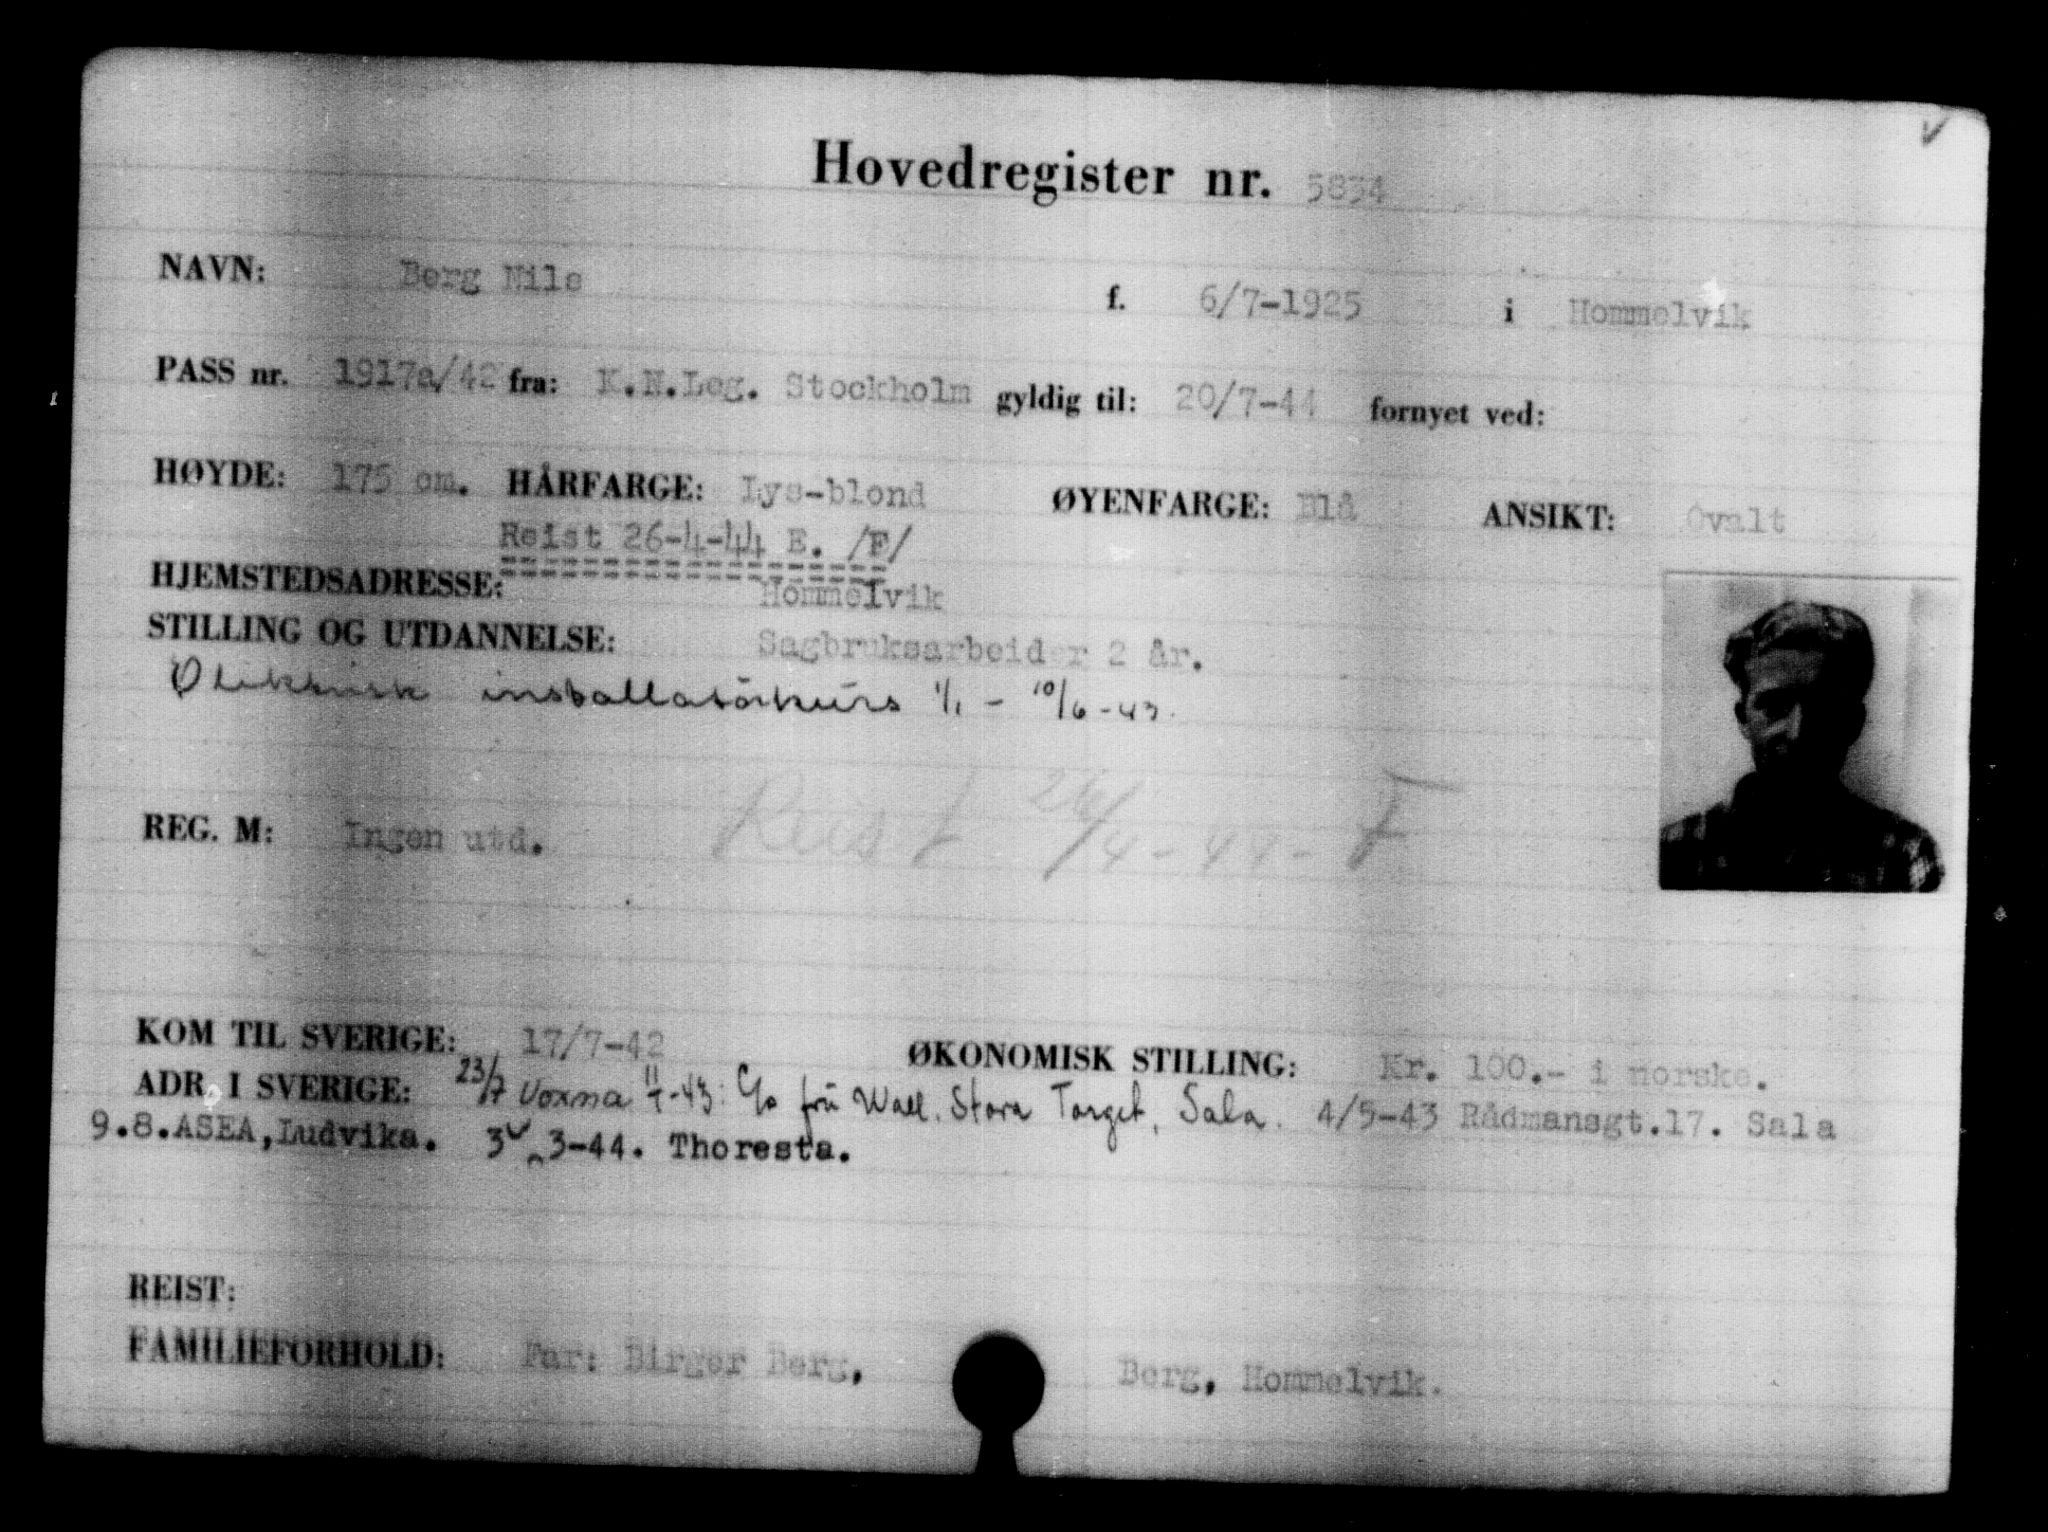 Hovedregister nr. 5834
NAVN: Berg Nils f. 6/7-1925 i Hommelvik
PASS nr. 1917a/42 fra: K.N.Leg. Stockholm gyldig til: 20/7-44 fornyet ved:
HØYDE: 175 cm. HÅRFARGE: Lys-blond ØYENFARGE: Blå ANSIKT: Ovalt
Reist 26-4-44 E. /F/
HJEMSTEDSADRESSE: Hommelvik
STILLING OG UTDANNELSE: Sagbruksarbeider 2 år.
installatörkurs 1/1 - 10/6-43.
REG. M: Ingen utd. Reist 26/4-44- F
KOM TIL SVERIGE: 17/7-42 ØKONOMISK STILLING: Kr. 100.- i norske.
ADR. I SVERIGE: 23/7 Voxna 11/1-43: C/o fru Wall. Stora Torget, Sala. 4/5-43 Rådmansgt.17. Sala
9.8.ASEA,Ludvika. 3-44. Thoresta.
REIST:
FAMILIEFORHOLD: Far: Birger Berg, Berg, Hommelvik.